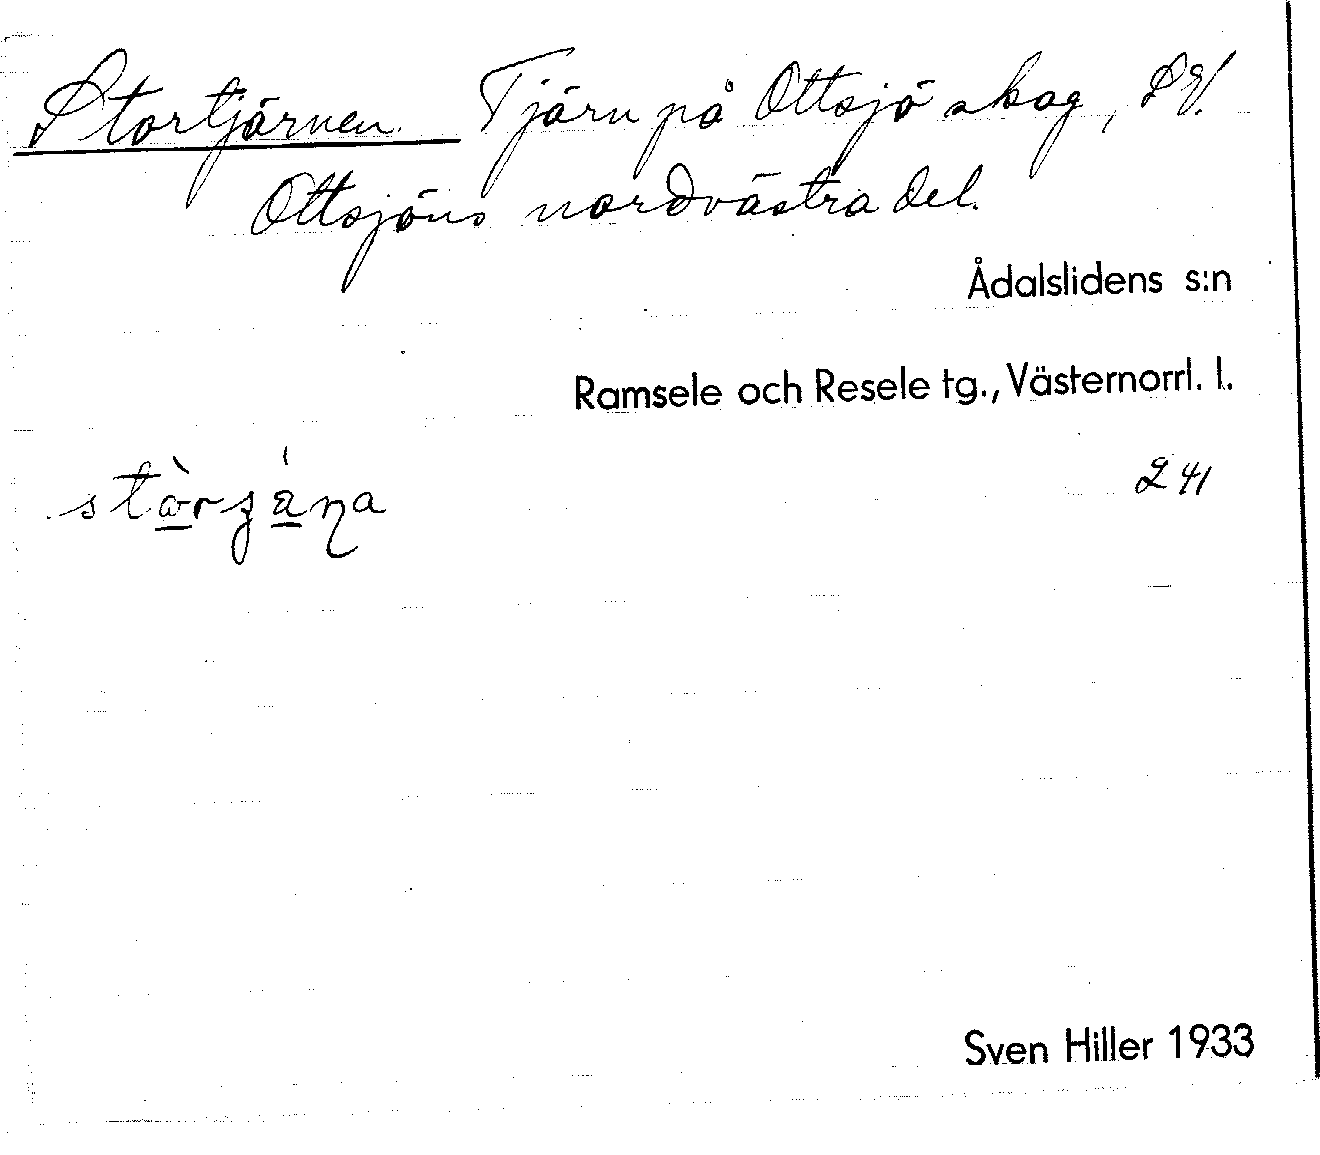 Stortjärnen. Tjärn på Ottsjö skog, SV.
Ottsjöns nordvästra del.
Ådalslidens s:n
Ramsele och Resele tg., Västernorrl. l.
241
Sven Hiller 1933